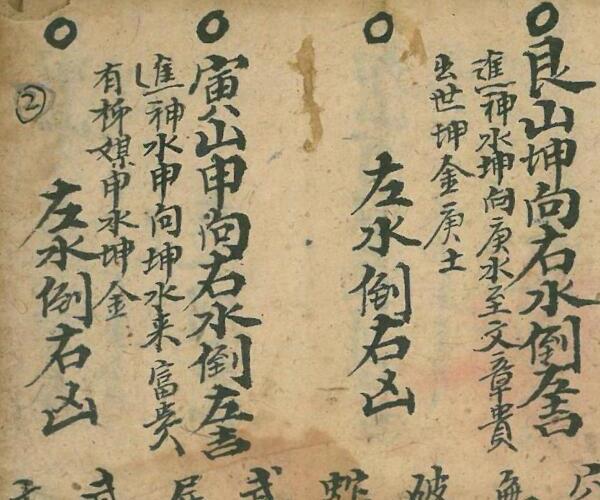 艮山坤向右水倒左吉
進神水坤向庚水至文章貴
出世坤金庚土
左水倒右凶
寅山申向右水倒左吉
進神水申向坤水来富貴人
有柳媒申水坤金
左水倒右凶
②
破
蛇
武
居
武